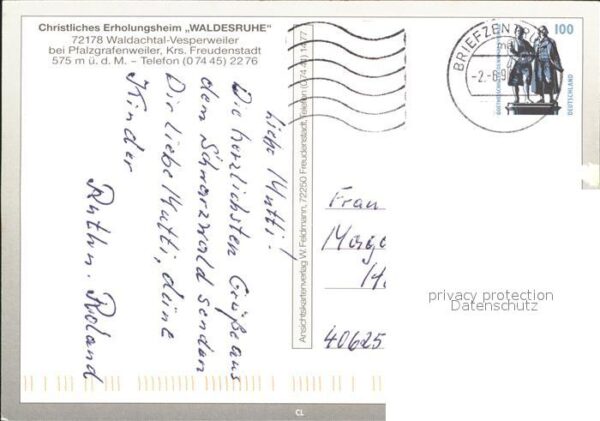 Christliches Erholungsheim „WALDESRUHE"
72178 Waldachtal-Vesperweiler
bei Pfalzgrafenweiler, Krs. Freudenstadt
575 m ü. d. M. – Telefon (0 74 45) 22 76
Liebe Mutti!
Die herzlichsten Grüße aus
dem Schwarzwald senden
Dir liebe Mutti, deine
Kinder
Ruth u. Roland
Ansichtskartenverlag W. Feldmann, 72250 Freudenstadt, Telefon (0 74 41) 14 77
BRIEFZENTR
-2.-6.9
100
DEUTSCHLAND
Frau
40625
privacy protection
Datenschutz
CL